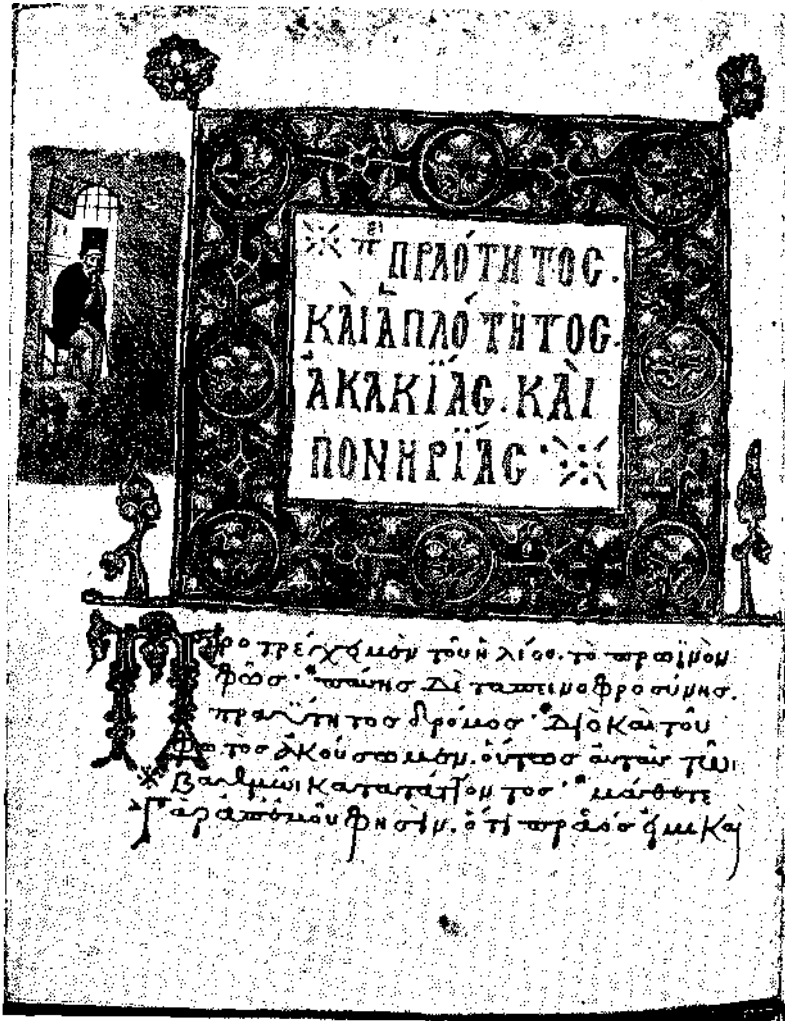 πε πραότητος.
καὶ ἁπλότητος.
ἀκακΐας. καὶ
πονηρΐας
Προτρέχει μὲν τοῦ ἡλίου. τὸ πρωϊνὸν
φῶς· πάσης δὲ ταπεινοφροσύνης.
πραΰτητος δρόμος· διὸ καὶ τοῦ
φωτὸς ἀκούσωμεν. οὕτως αὐτὰς τῶι
βαθμῶι κατατάττοντος· μάθετε
γὰρ ἀπ' ἐμοῦ φησὶν. ὅτι πρᾶός εἰμι καὶ